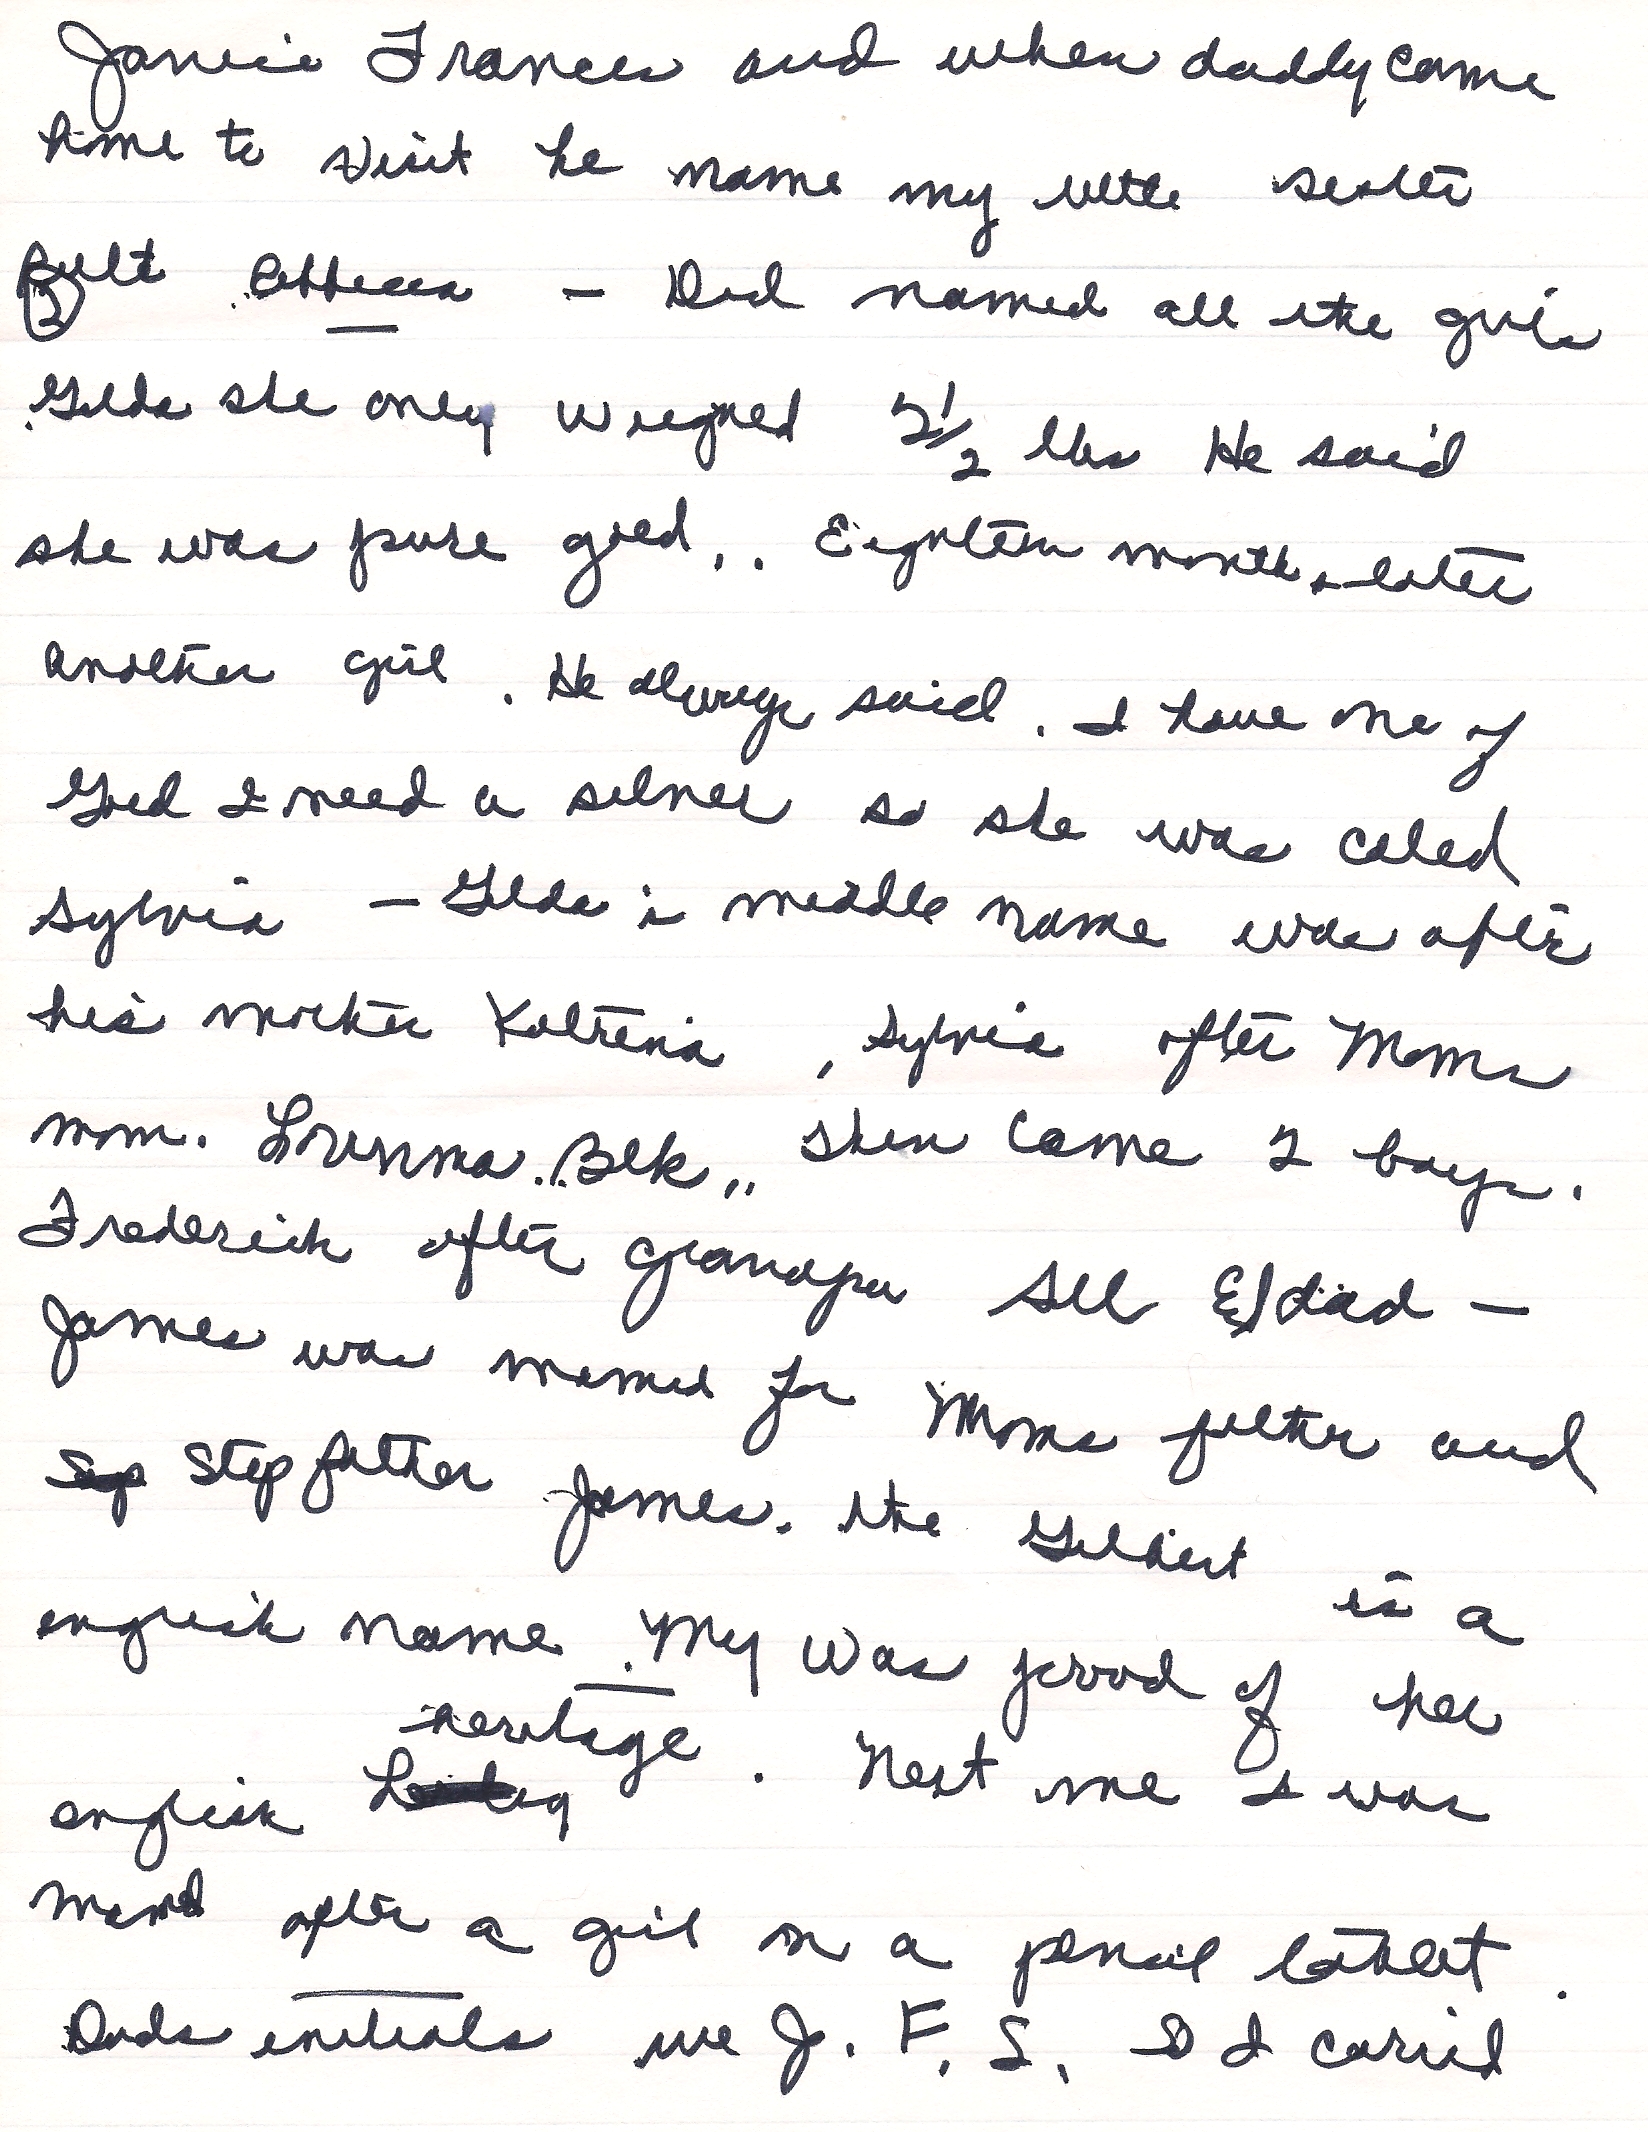 Janice Frances and when daddy came
home to visit he name my little sester
Ruth Rebbecca – Dad named all the girls
Gilda she only weighed 2 1/2 lbs He said
she was pure gold.. Eighteen months later
another girl. He always said. I have one of
Gold I need a silver so she was caled
Sylvia – Gilda is middle name was after
his mother Katrena, Sylvia after Moms
mom. Belk,, then came 2 boys.
Frederick after grandpa dad –
James was named for Moms father and
Step father James. the Gilbert is a
english name. My was proud of her
heritage
english . Next me I was
named after a girl on a pencil tablet.
Dads enitials we J. F. S. so I carried